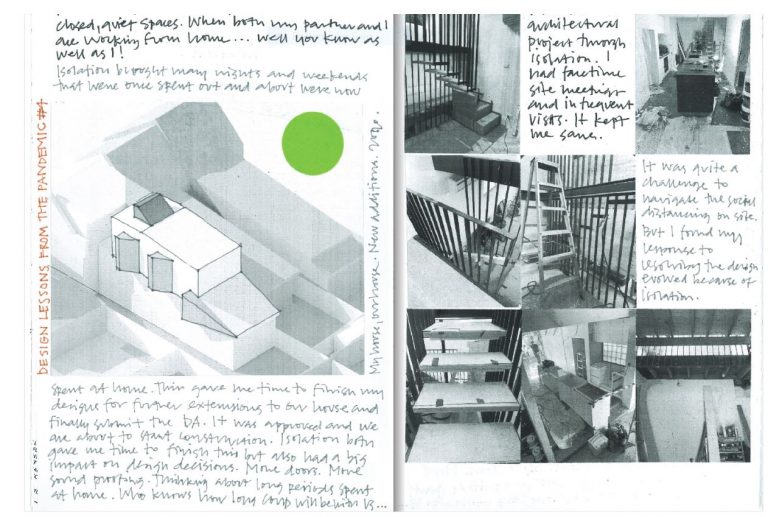 closed, quiet spaces. When both my partner and I
are working from home... well you know as
well as I!
Isolation brought many nights and weekends
that were once spent out and about were now
DESIGN LESSONS FROM THE PANDEMIC #4
My house, our house. New additions. 2020.
spent at home. This gave me time to finish my
designs for further extensions to our house and
finally submit the DA. It was approved and we
are about to start construction. Isolation both
gave me time to finish this but also had a big
impact on design decisions. More doors. More
sound proofing. Thinking about long periods spent
at home. Who knows how long COVID will be with us...
architectural
project through
isolation. I
had facetime
site meetings
and infrequent
visits. It kept
me sane.
It was quite a
challenge to
navigate the social
distancing on site.
But I found my
response to
resolving the design
evolved because of
isolation.